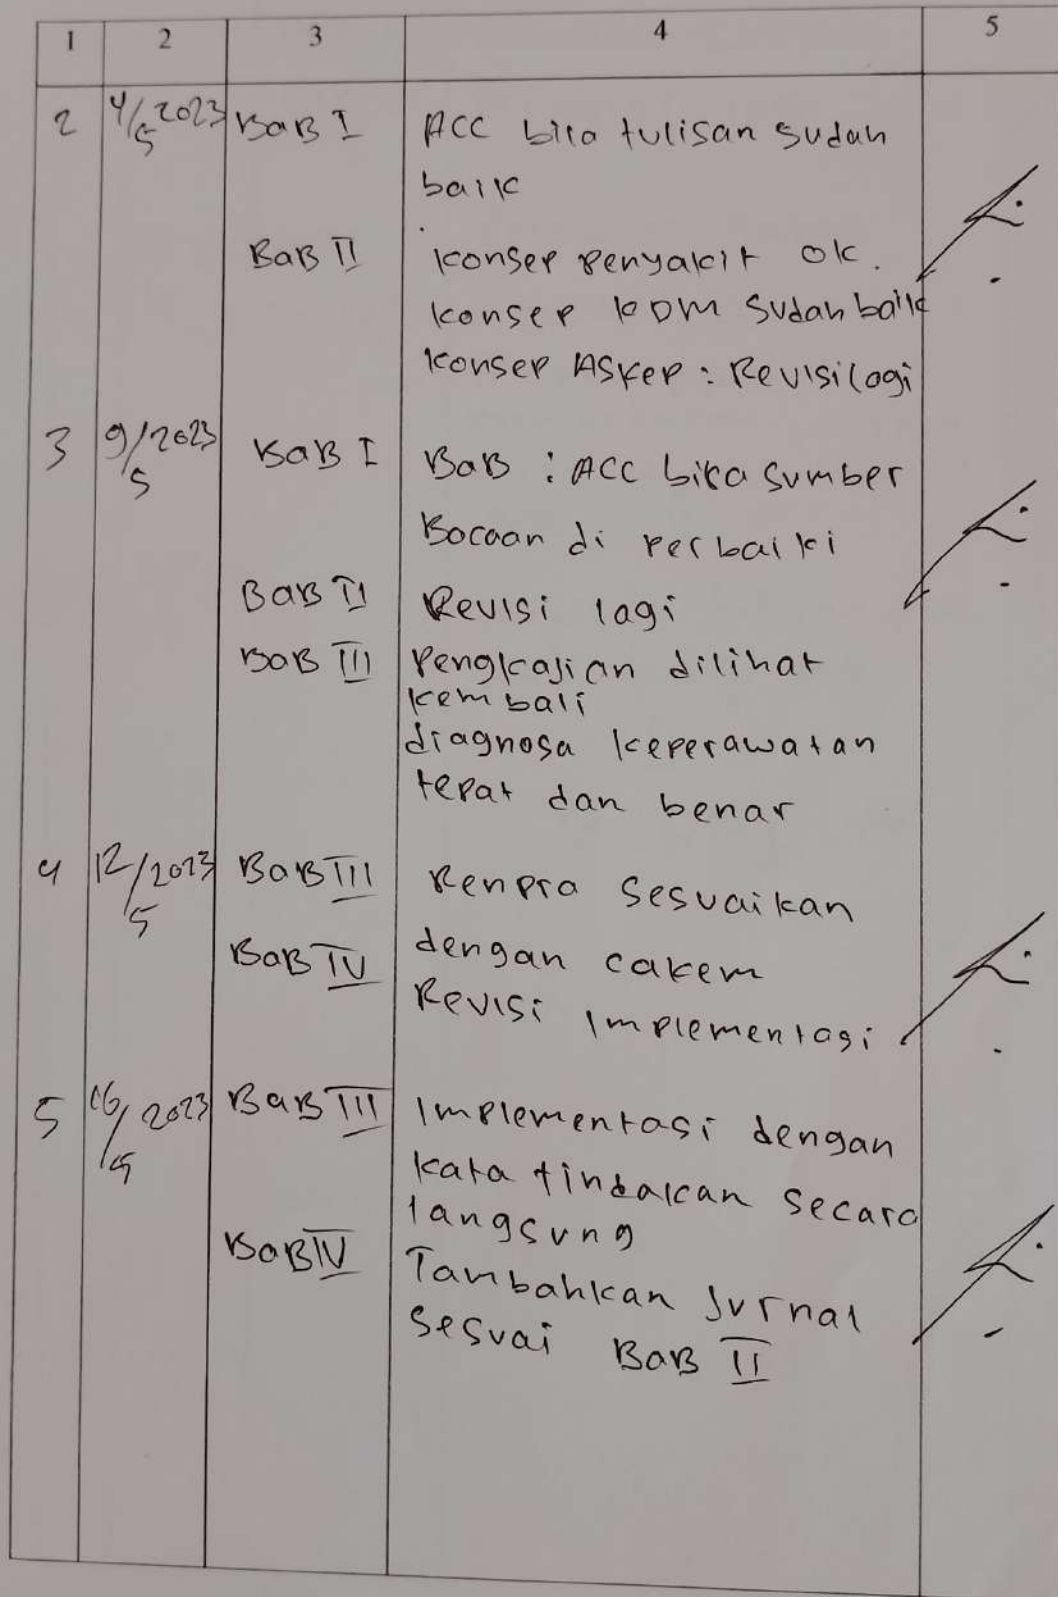 1 2 3 4 5
2 4/5 2023 BAB I ACC bila tulisan sudah
baik
BAB II konsep penyakit ok.
konsep KDM sudah baik
konsep ASKEP : Revisi lagi
3 9/5 2023 BAB I BAB : ACC bika sumber
Bacaan di perbaiki
BAB II Revisi lagi
BAB III Pengkajian dilihat
kembali
diagnosa keperawatan
tepat dan benar
4 12/5 2023 BAB III Renpra sesuaikan
BAB IV dengan cakem
Revisi implementasi
5 16/5 2023 BAB III Implementasi dengan
kata tindakan secara
langsung
BAB IV Tambahkan Jurnal
sesuai BAB II